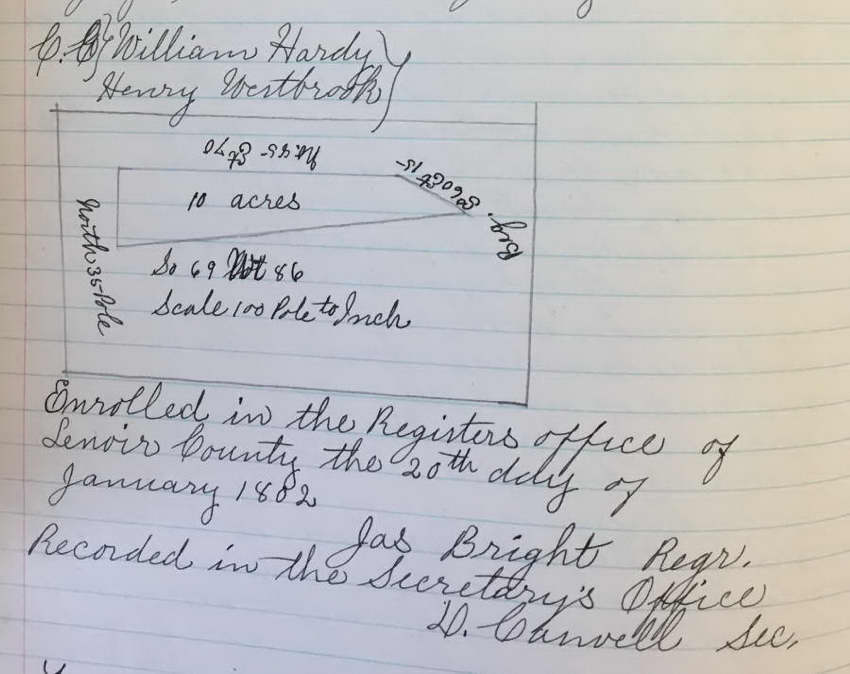 C. C. } William Hardy }
Henry Westbrook }
No. 55 Et 70
So 60 Et 15
Beg.
10 acres
North 35 Pole
So 69 Wt 86
Scale 100 Pole to Inch
Enrolled in the Registers office of
Lenoir County the 20th day of
January 1802
Jas Bright Regr.
Recorded in the Secretary's Office
D. Canvell Sec.